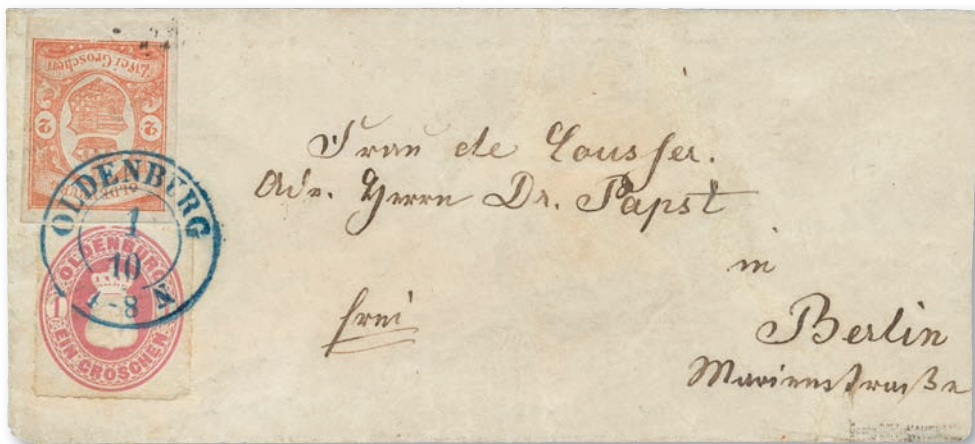 Zwei Groschen
2 2
OLDENBURG
1
10
4-8 N
OLDENBURG
1
EIN GROSCHEN
Frau de Cousser.
Adr. Herrn Dr. Papst
in
frei
Berlin
Marienstraße